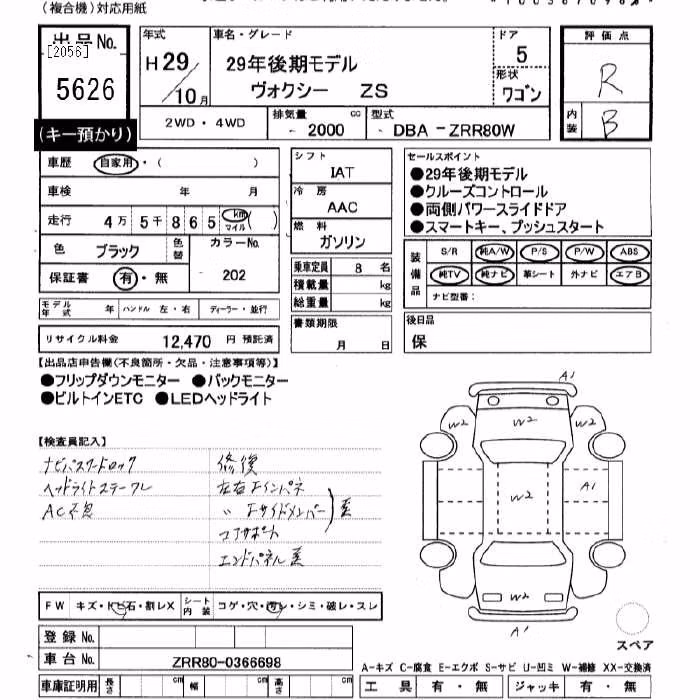 (複合機)対応用紙
出品No.
[2056]
5626
(キー預かり)
年式
H29/10月
車名・グレード
29年後期モデル
ヴォクシー ZS
ドア
5
形状
ワゴン
評価点
R
内装
B
2WD・4WD
排気量
- 2000 cc
型式
- DBA - ZRR80W
車歴 自家用・( )
車検 年 月
走行 4万5千865 km マイル ( )
色 ブラック 色替 カラーNo.
保証書 有・無 202
モデル年式 年 ハンドル 左・右 ディーラー・並行
リサイクル料金 12,470 円 預託済
シフト
IAT
冷房
AAC
燃料
ガソリン
乗車定員 8 名
積載量 kg
総重量 kg
書類期限
月 日
セールスポイント
●29年後期モデル
●クルーズコントロール
●両側パワースライドドア
●スマートキー、プッシュスタート
装備品
S/R 純A/W P/S P/W ABS
純TV 純ナビ 革シート 外ナビ エアB
ナビ型番:
後日品
保
【出品店申告欄(不良箇所・欠品・注意事項等)】
●フリップダウンモニター ●バックモニター
●ビルトインETC ●LEDヘッドライト
【検査員記入】
ナビパスワードロック
ヘッドライトステー
AC不良
修復
左右
〃
コアサポート
エンドパネル
A1
W2 W2 W2
W2
A1
W2
A1
スペア
FW キズ・トビ石・割レX シート内装 コゲ・穴・汚レ・シミ・破レ・スレ
登録No.
車台No. ZRR80-0366698
車庫証明用 長さ 幅 高さ
A-キズ C-腐食 E-エクボ S-サビ U-凹ミ W-補修 XX-交換済
工具 有・無 ジャッキ 有・無